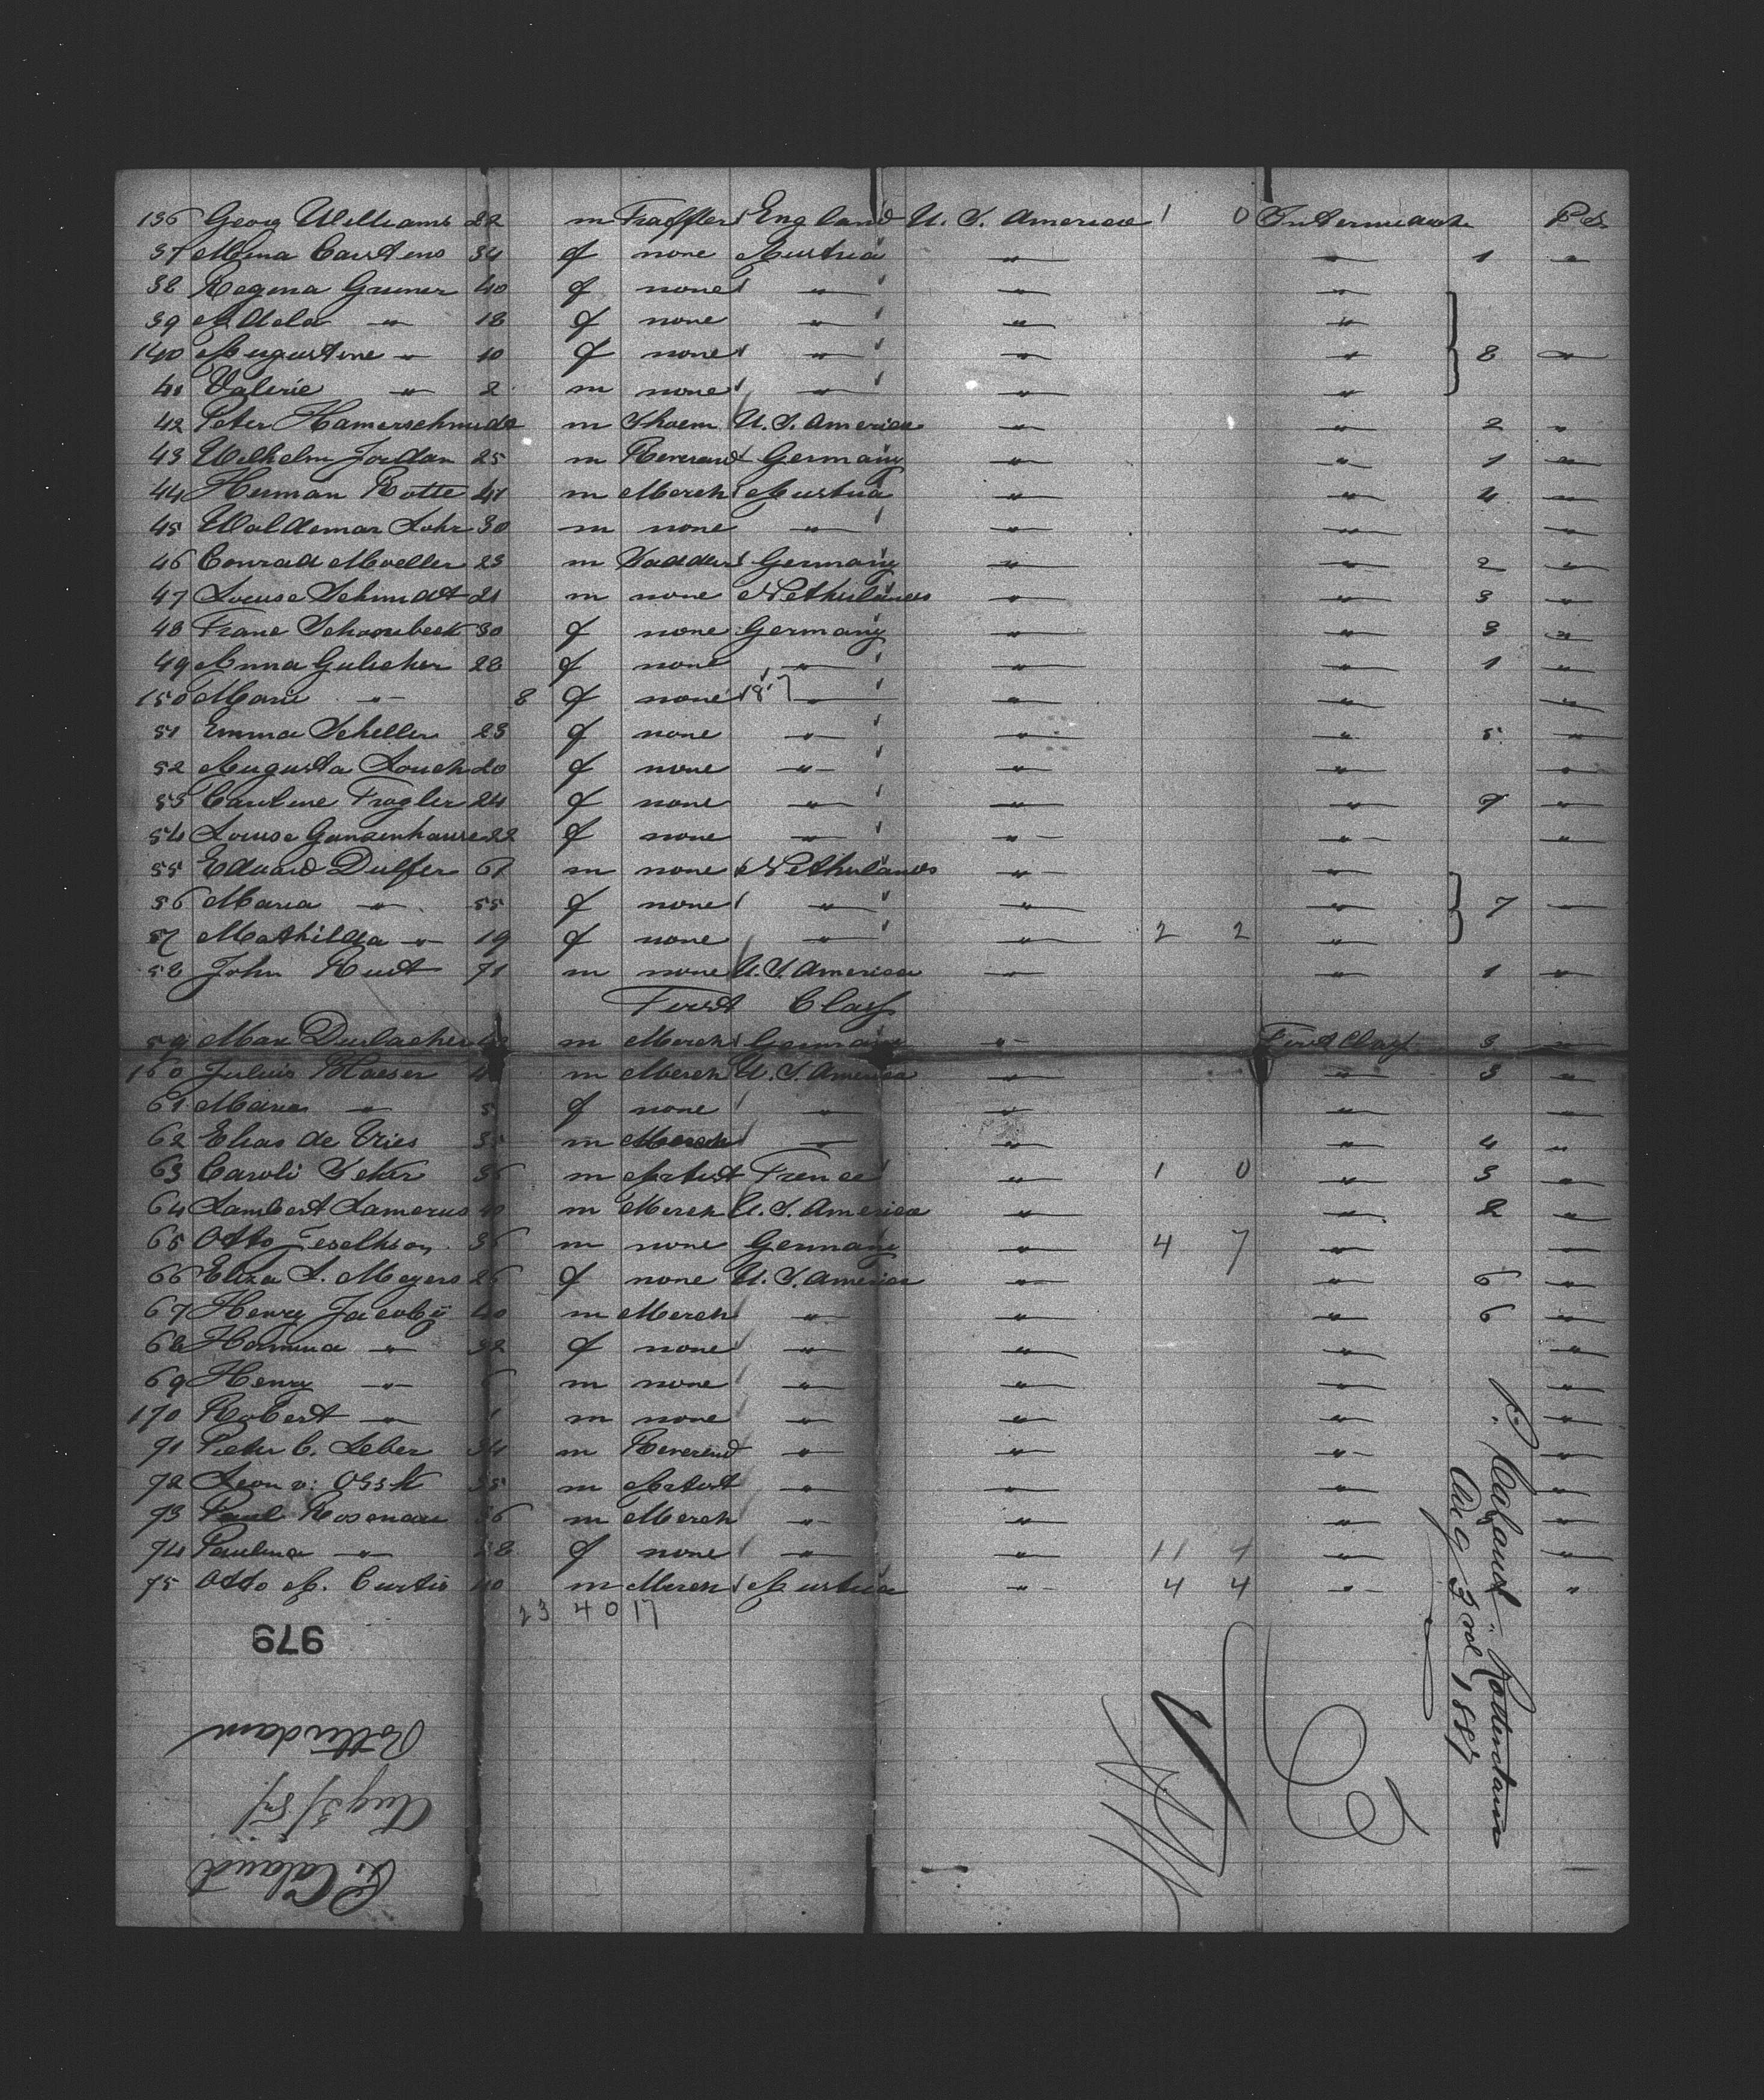 136 Georg Williams 22 m England U. S. America 1 0 Intermediate
37 Mina Carstens 34 f none Austria " " 1 "
38 Regina Gruner 40 f none " " "
39 Adela " 18 f none " " "
140 Augustine " 10 f none " " " 8 "
41 Valerie " 2 m none " " "
42 Peter Hamerschmidt m Shoem U. S. America " " 2 "
43 Wilhelm Jordan 25 m Reverend Germany " " 1 "
44 Herman Rotte 41 m Merch Austria " " 4 "
45 Waldemar Lohr 30 m none " " " "
46 Conrad Moeller 23 m Germany " " 2 "
47 Louise Schmidt 21 m none Netherlands " " 3 "
48 Franc Schoonbeek 30 f none Germany " " 3 "
49 Anna Gulicher 28 f none " " " 1 "
150 Marie " 8 f none " " " "
51 Emma Scheller 23 f none " " " 5 "
52 Augusta 20 f none " " " "
53 Caroline Fragler 24 f none " " " "
54 Louise Gunzenhauser 22 f none " " " "
55 Eduard Dulfer 61 m none Netherlands " "
56 Maria " 55 f none " " " 7 "
57 Mathilda " 19 f none " " 2 2 "
58 John Rust 71 m none U. S. America " " 1 "
First Class
59 Max Durlacher m Merch Germany " First Class 3 "
160 Julius m Merch U. S. America " " 3 "
61 Maria " f none " " " "
62 Elias de Vries m Merch " " " 4 "
63 Caroli 36 m Artist France " 1 0 " 3 "
64 Lambert Lamerus 40 m Merch U. S. America " " 2 "
65 Otto 36 m none Germany " 4 7 "
66 Eliza S. Meyers 26 f none U. S. America " " 6 "
67 Henry Jacoby 40 m Merch " " " 6 "
68 Hermina " 32 f none " " " "
69 Henry " m none " " " "
170 Robert " m none " " " "
71 Pieter C. Leber 34 m Reverend " " " "
72 Leon v. m Artist " " " "
73 Paul Rosenau 36 m Merch " " " "
74 Paulina " 28 f none " " 11 4 " "
75 Otto A. Curtis 40 m Merch Austria " 4 4 " "
23 4 0 17
979
P. Caland
Aug 3/87
Rotterdam
P. Caland - Rotterdam
Aug 3rd 1887